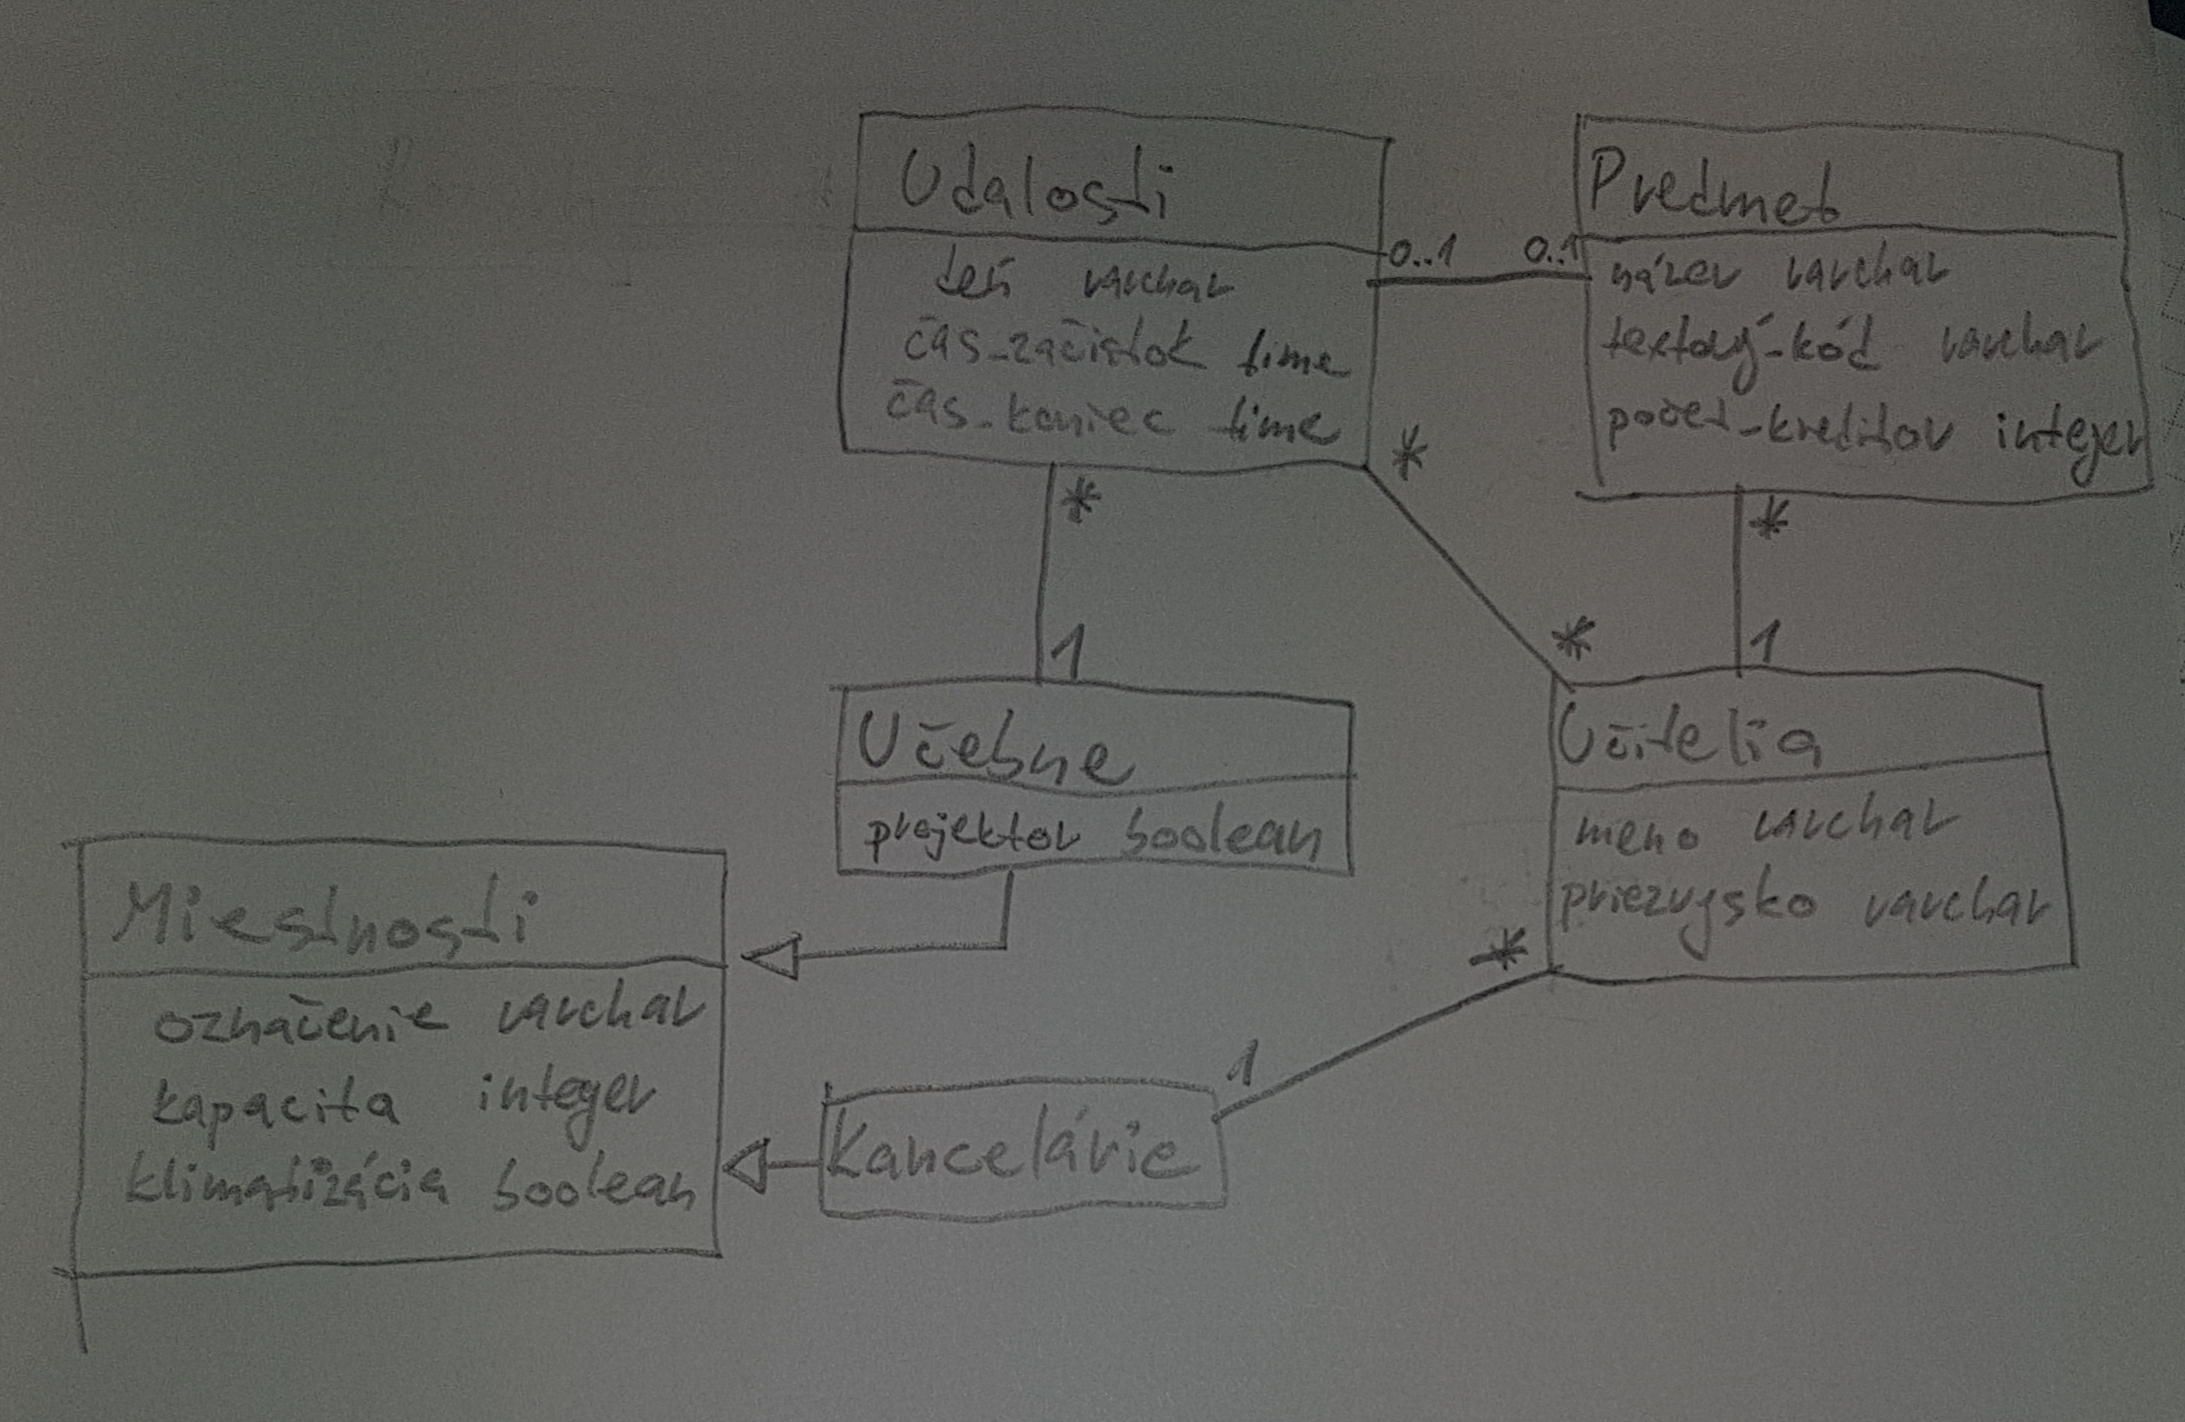 Udalosti
deň varchar
čas_začiatok time
čas_koniec time
0..1 0..1
Predmet
názov varchar
textový_kód varchar
počet_kreditov integer
*
*
*
*
1
1
Učebne
projektor boolean
Učitelia
meno varchar
priezvysko varchar
*
1
Miestnosti
označenie varchar
kapacita integer
klimatizácia boolean
Kancelárie